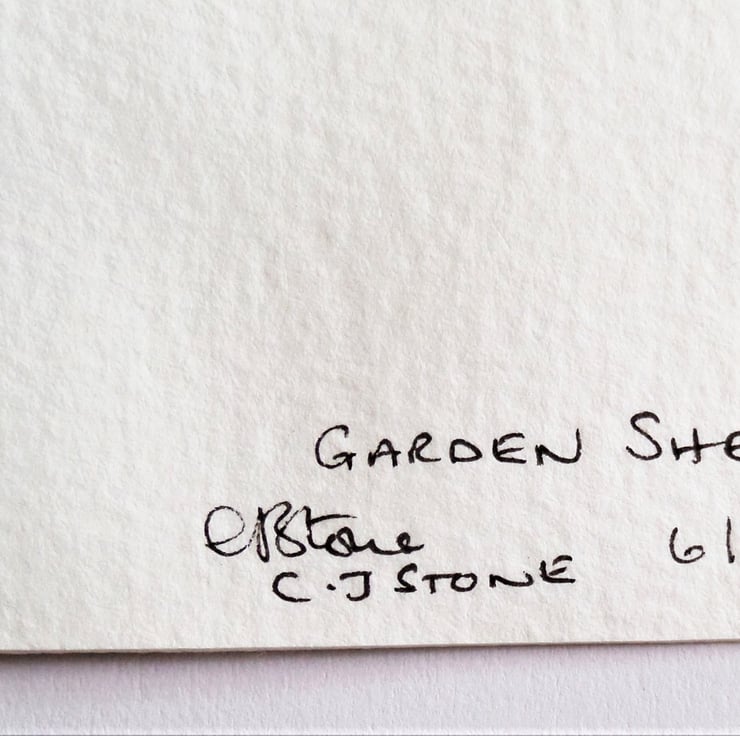 GARDEN SHE
CJStone 6/
C.J STONE